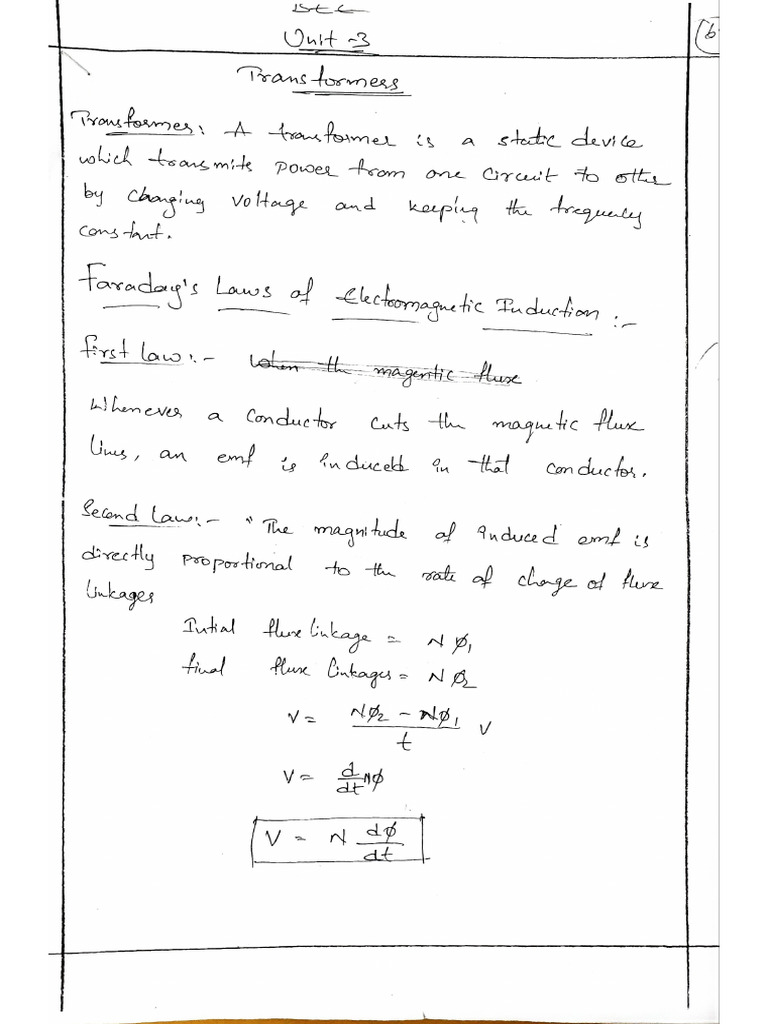 BEE
Unit-3
6
Transformers
Transformer: A transformer is a static device
which transmits power from one circuit to other
by changing voltage and keeping the frequency
constant.
Faraday's Laws of Electromagnetic Induction :-
First law :- when the magentic flux
Whenever a conductor cuts the magnetic flux
lines, an emf is induced in that conductor.
Second Law:- "The magnitude of induced emf is
directly proportional to the rate of change of flux
linkages
Intial flux linkage = Nϕ₁
final flux linkages = Nϕ₂
V = (Nϕ₂ - Nϕ₁)/t V
V = d/dt Nϕ
V = N dϕ/dt